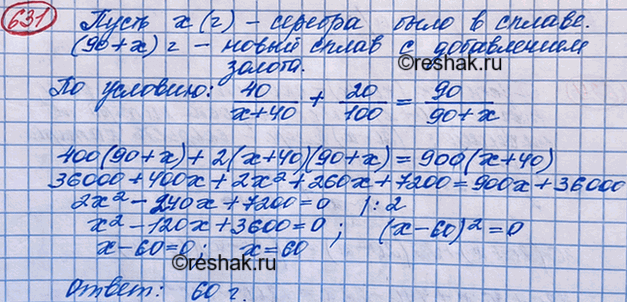 631
Пусть x (г) – серебра было в сплаве.
(90+x) г – новый сплав с добавлением
золота.
©reshak.ru
По условию: 40/(x+40) + 20/100 = 90/(90+x)
400(90+x)+2(x+40)(90+x)=900(x+40)
36000+400x+2x²+260x+7200=900x+36000
2x²-240x+7200=0 |:2
x²-120x+3600=0; (x-60)²=0
x-60=0; x=60
©reshak.ru
Ответ: 60 г.